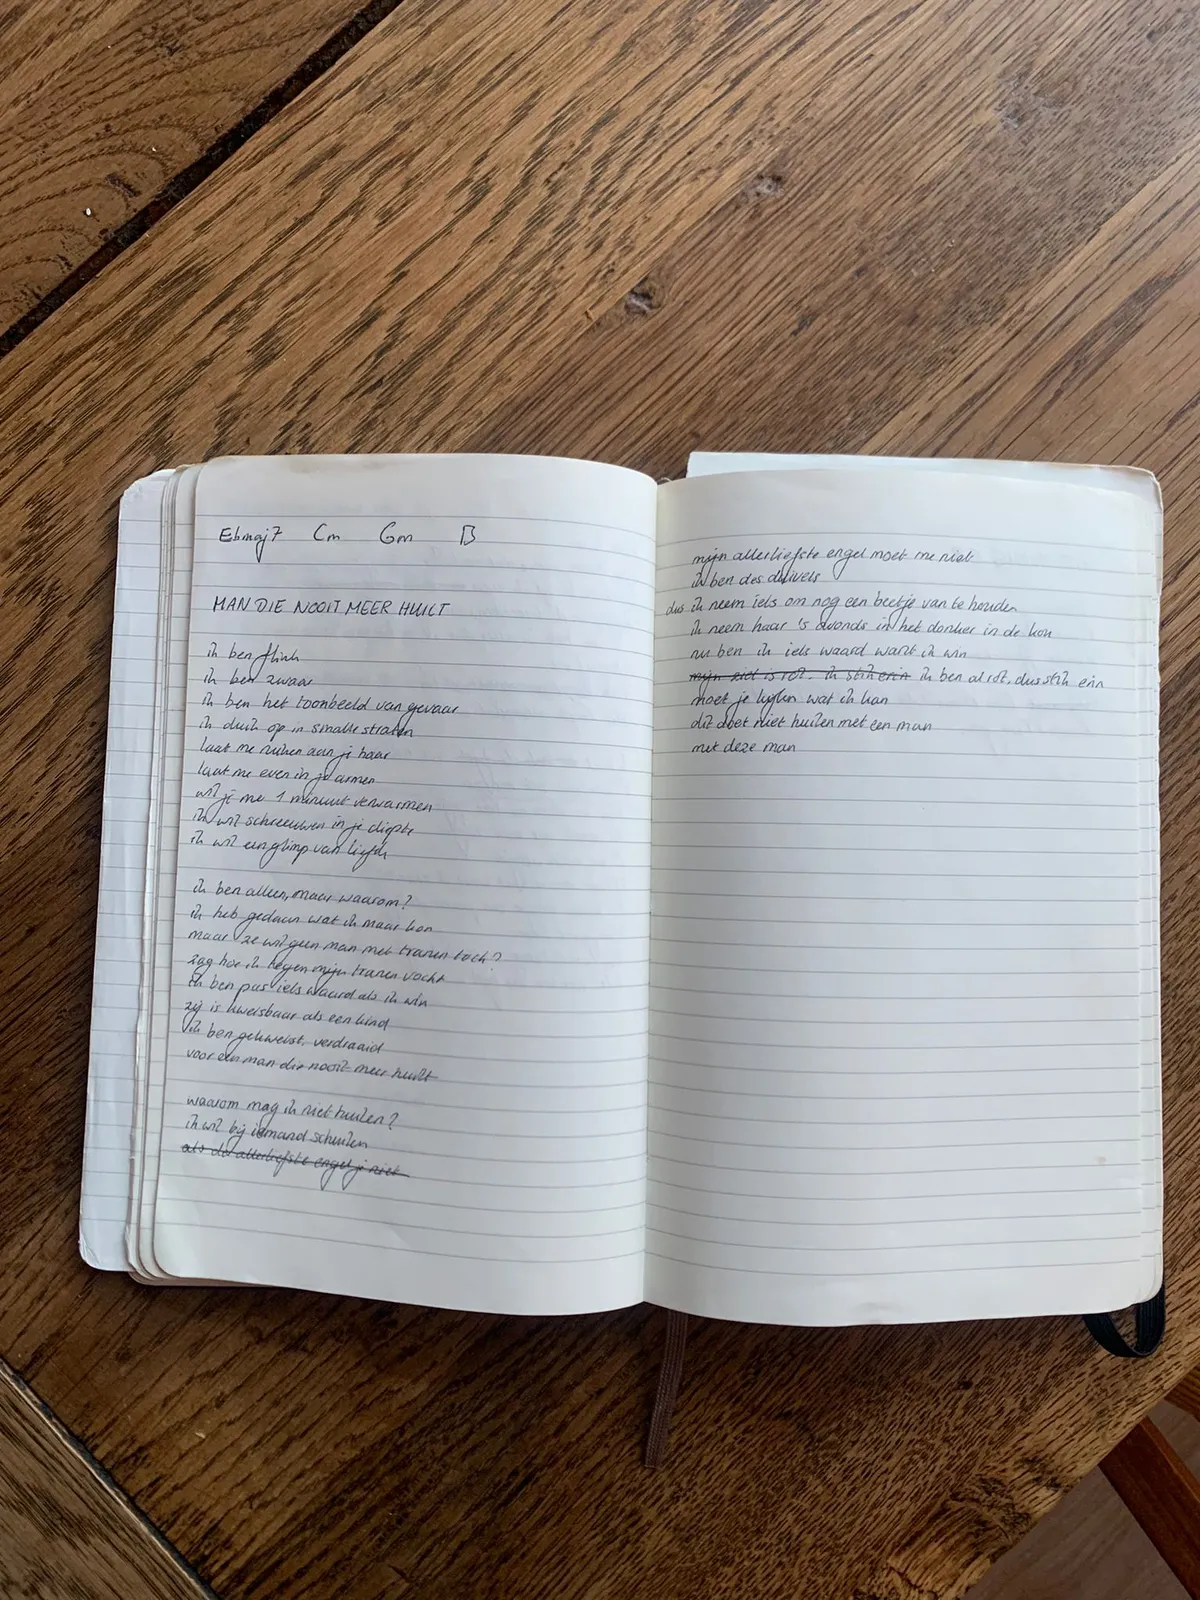 Ebmaj7 Cm Gm B
MAN DIE NOOIT MEER HUILT
ik ben flink
ik ben zwaar
ik ben het toonbeeld van gevaar
ik duik op in smalle straten
laat me ruiken aan je haar
laat me even in je armen
wil je me 1 minuut verwarmen
ik wil schreeuwen in je diepte
ik wil een glimp van liefde
ik ben alleen, maar waarom?
ik heb gedaan wat ik maar kon
maar ze wil geen man met tranen toch?
zag hoe ik tegen mijn tranen vocht
ik ben pas iets waard als ik win
zij is kweisbaar als een kind
ik ben gekweist, verdraaid
voor een man die nooit meer huilt
waarom mag ik niet huilen?
ik wil bij iemand schuilen
als de allerliefste engel je niet
mijn allerliefste engel moet me niet
ik ben des duivels
dus ik neem iets om nog een beetje van te houden
ik neem haar 's avonds in het donker in de kou
nu ben ik iets waard want ik win
mijn ziel is rot. ik stik erin ik ben al rot, dus stik erin
moet je kijken wat ik kan
dit doet niet huilen met een man
met deze man